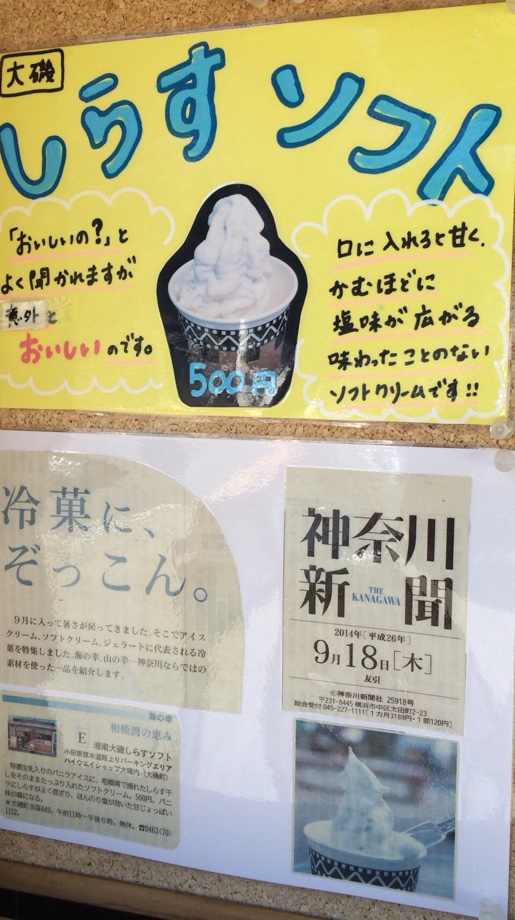 大磯
しらすソフト
「おいしいの?」と
よく聞かれますが
意外と
おいしいのです。
500円
口に入れると甘く、
かむほどに
塩味が広がる
味わったことのない
ソフトクリームです!!
冷菓に、
ぞっこん。
9月に入って暑さが戻ってきました。そこでアイス
クリーム、ソフトクリーム、ジェラートに代表される冷
菓を特集しました。海の幸、山の幸…神奈川ならではの
素材を使った一品を紹介します。
海の幸
相模湾の恵み
E 湘南大磯しらすソフト
小田原厚木道路上りパーキングエリア
ハイウエイショップ大磯内(大磯町)
特濃生乳入りのバニラアイスに、相模湾で捕れたしらす干
しをそのままたっぷり入れたソフトクリーム。500円。バニ
ラにしらすがよく混ざり、ほんのり塩が効いた甘じょっぱい
味が癖になる。
1152。午前11時~午後6時。無休。☎0463(70)
神奈川
新聞
THE
KANAGAWA
2014年[平成26年]
9月18日[木]
友引
©神奈川新聞社 25918号
〒231-8445 横浜市中区太田町2-23
総合受付 045-227-1111[1カ月3189円・1部120円]